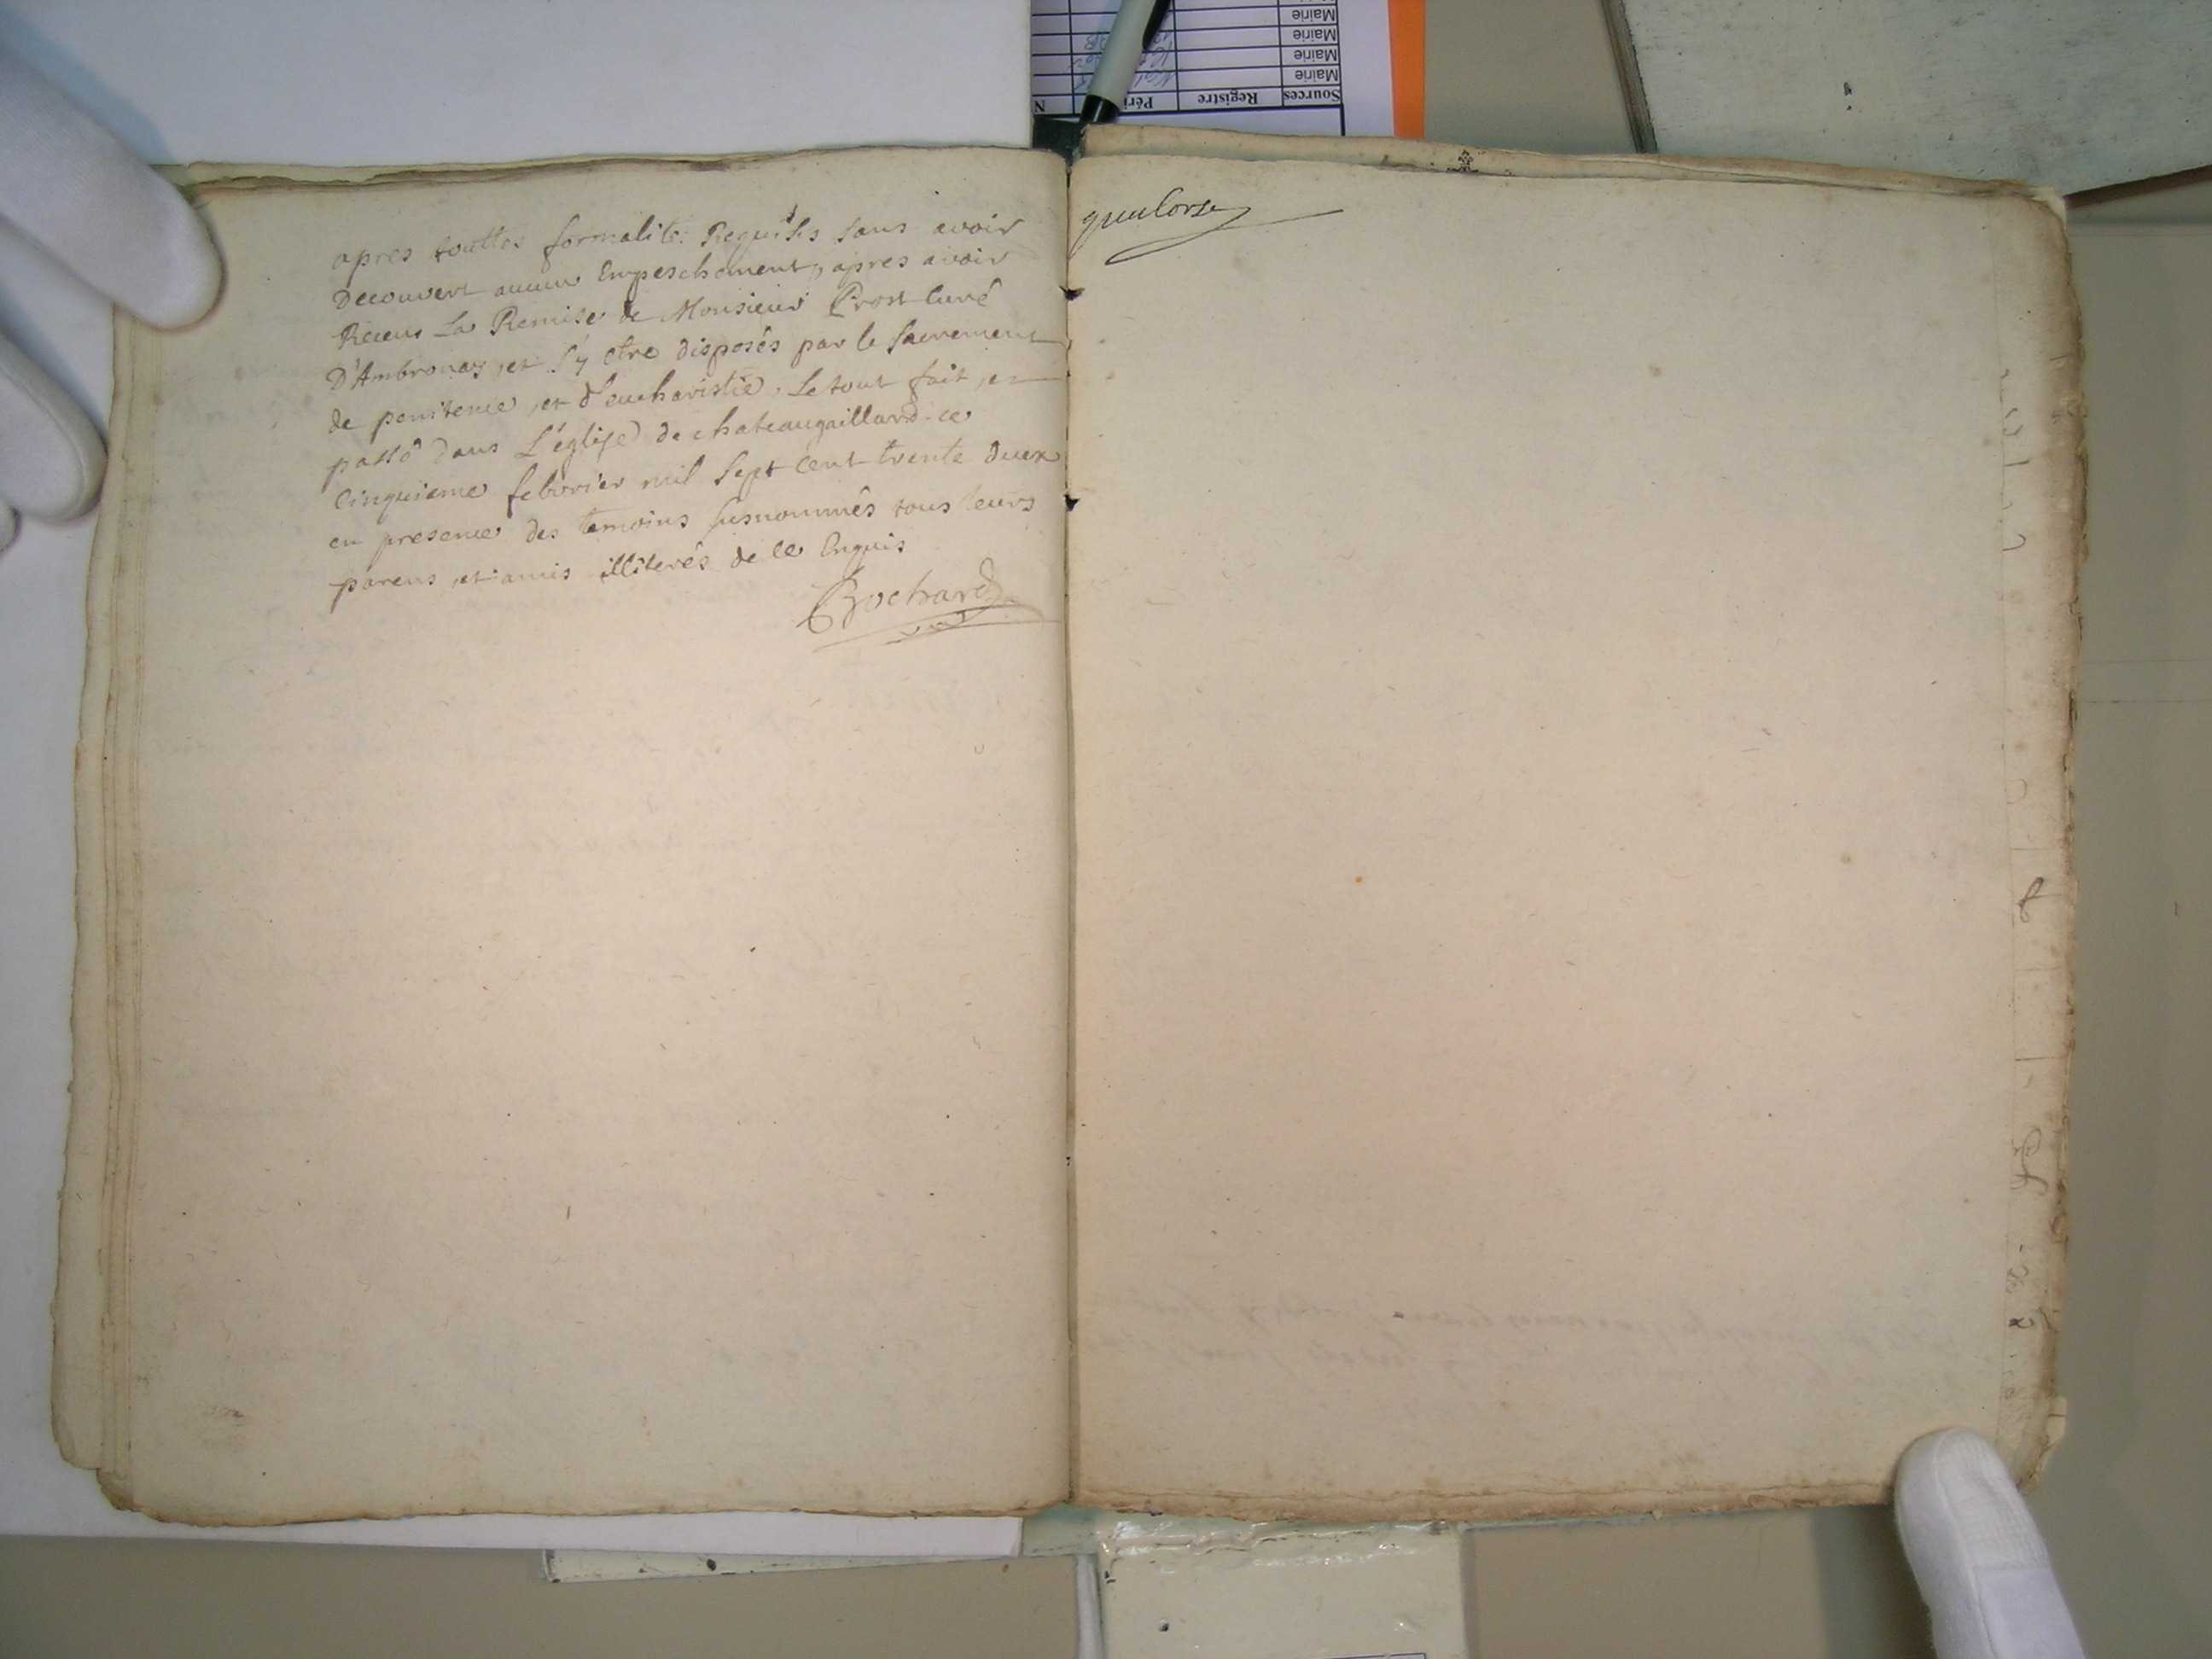 apres touttes formalité Requises sans avoir
Decouvert aucun Empeschement, apres avoir
Receu La Remise de Monsieur Prost Curé
D'Ambronay, et s'y etre disposés par le sacrement
de penitence, et d'eucharistie, Le tout fait, et
passé dans L'église de chateaugaillard ce
cinquieme febvrier mil sept cent trente deux
en presence des temoins susnommés tous leurs
parens et amis illiterés de ce Enquis
Bochard
Sources Registre Péri N
Mairie
Mairie
Mairie
Mairie